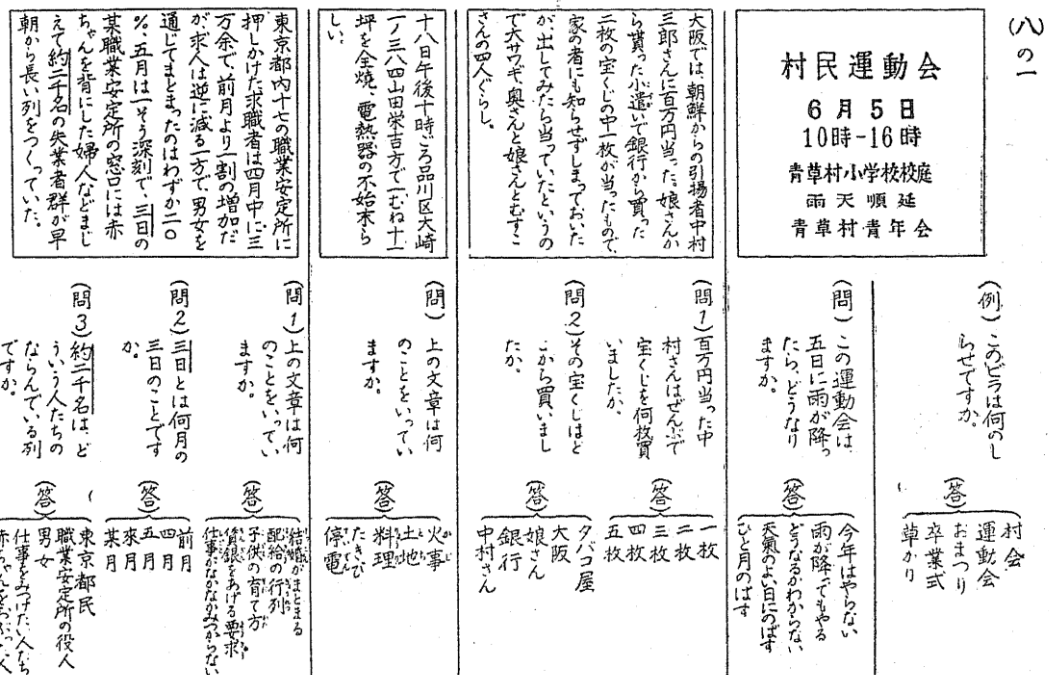 (八)の一
村民運動会
6月5日
10時-16時
青草村小学校校庭
雨天順延
青草村青年会
(例)このビラは何のし
らせですか。
(答)
村会
運動会
おまつり
卒業式
草かり
(問)この運動会は、
五日に雨が降っ
たら、どうなり
ますか。
(答)
今年はやらない
雨が降ってもやる
どうなるかわからない
天氣のよい日にのばす
ひと月のばす
大阪では、朝鮮からの引揚者中村
三郎さんに百万円当った。娘さんか
ら貰った小遣いで銀行から買った
二枚の宝くじの中一枚が当ったもので、
家の者にも知らせずしまっておいた
が、出してみたら当っていたというの
で大サワギ、奥さんと娘さんとむすこ
さんの四人ぐらし。
(問1)百万円当った中
村さんはぜんぶで
宝くじを何枚買
いましたか。
(答)
一枚
二枚
三枚
四枚
五枚
(問2)その宝くじはど
こから買いまし
たか。
(答)
タバコ屋
大阪
娘さん
銀行
中村さん
十八日午後十時ごろ品川区大崎
一ノ三八四山田栄吉方で一むね十一
坪を全燒、電熱器の不始末ら
しい。
(問)上の文章は何
のことをいってい
ますか。
(答)
火事
土地
料理
たきび
停電
東京都内十七の職業安定所に
押しかけた求職者は四月中に三
万余で、前月より一割の増加だ
が、求人は逆に減る一方で、男女を
通じてまとまったのはわずか二〇
%、五月は一そう深刻で、三日の
某職業安定所の窓口には赤
ちゃんを背にした婦人などまじ
えて約二千名の失業者群が早
朝から長い列をつくっていた。
(問1)上の文章は何
のことをいってい
ますか。
(答)
結婚がまとまる
配給の行列
子供の育て方
賃銀をあげる要求
仕事がなかなかみつからない
(問2)三日とは何月の
三日のことです
か。
(答)
前月
四月
五月
來月
某月
(問3)約二千名は、ど
ういう人たちの
ならんでいる列
ですか。
(答)
東京都民
職業安定所の役人
男女
仕事をみつけたい人たち